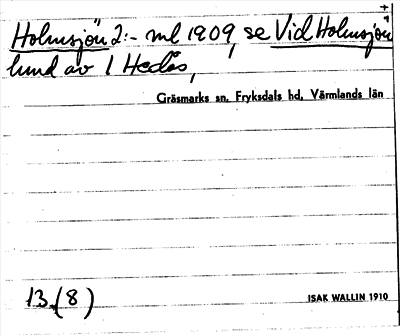 +
Holmsjön 2:- ml 1909, se Vid Holmsjön
lund av 1 Hedås,
Gräsmarks sn, Fryksdals hd, Värmlands län
13.(8)
ISAK WALLIN 1910